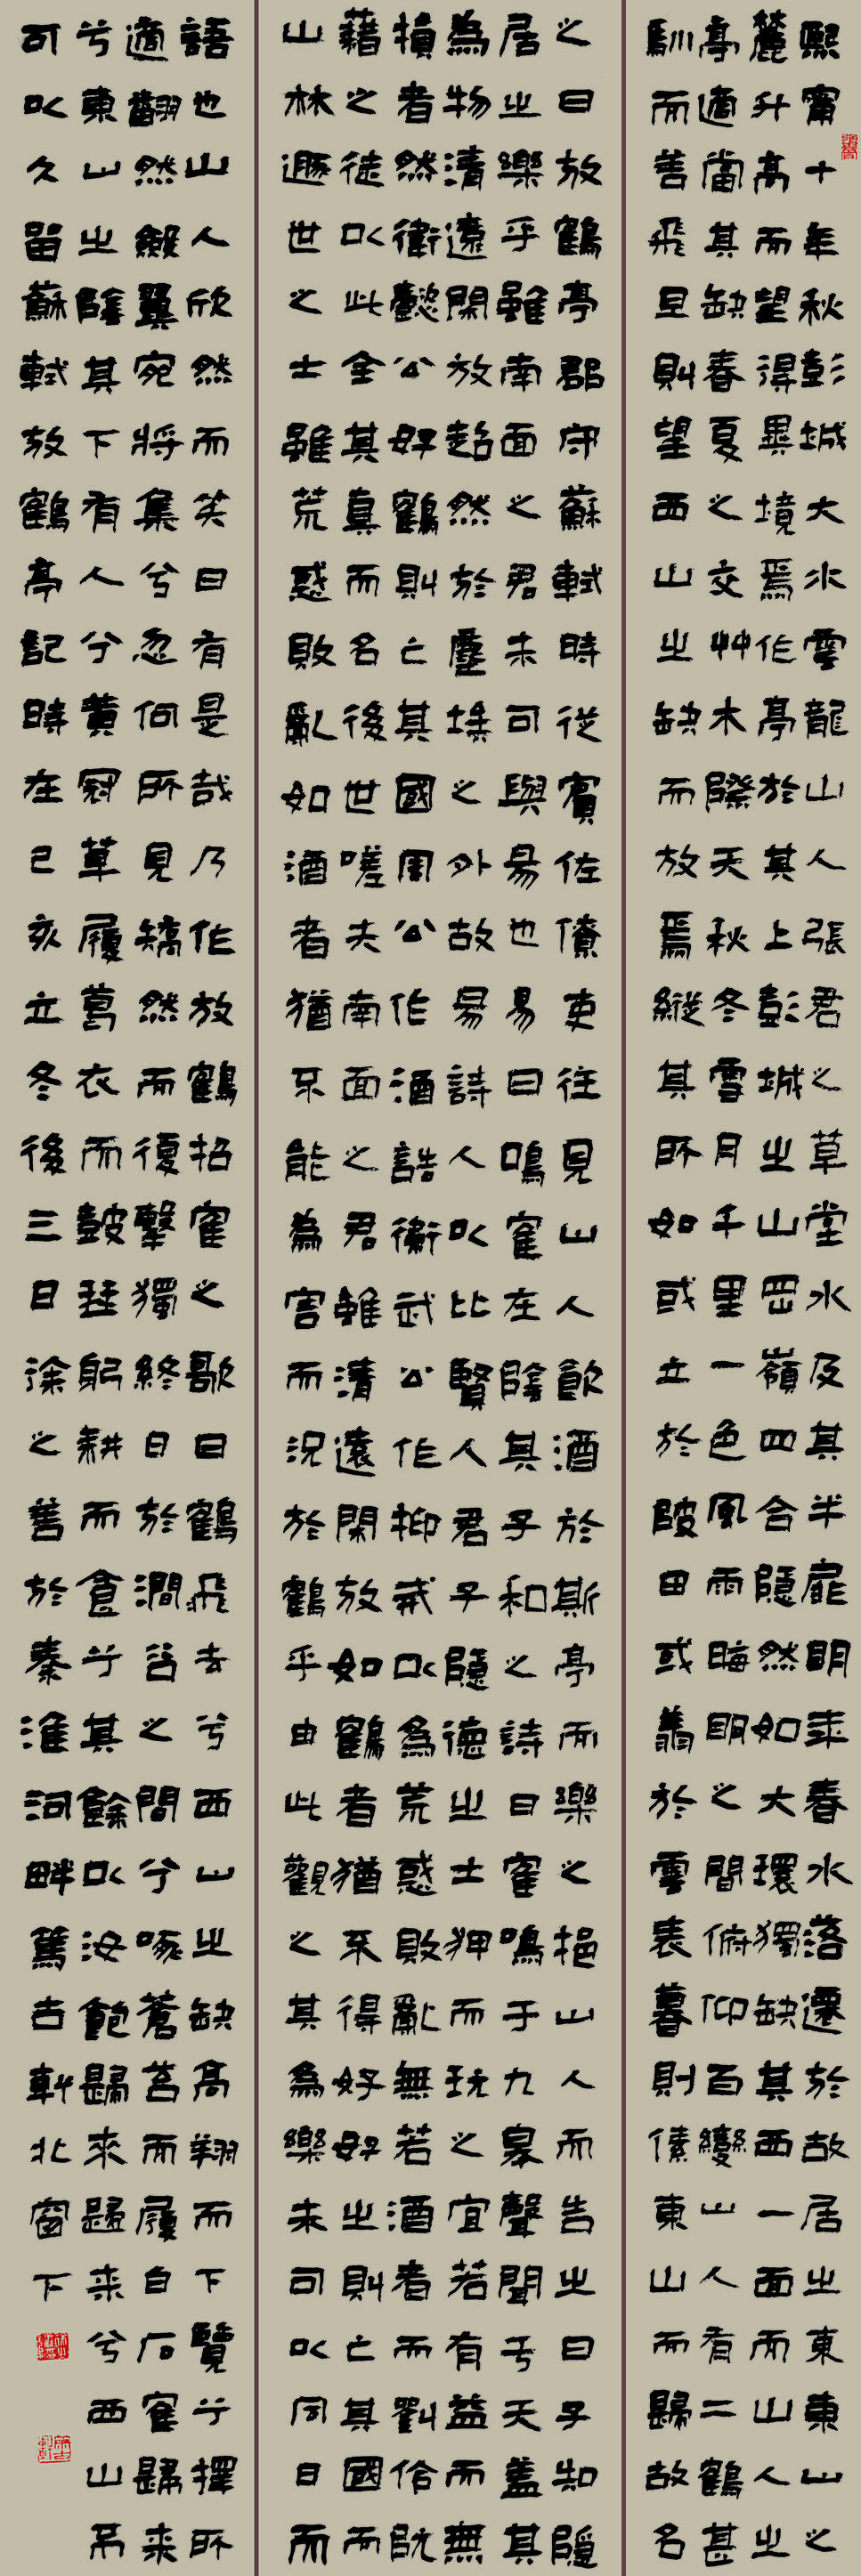 熙寧十年秋彭城大水雲龍山人張君之草堂水及其半扉明年春水落遷於故居之東東山之
麓升高而望得異境焉作亭於其上彭城之山岡嶺四合隱然如大環獨缺其西一面而山人之
亭適當其缺春夏之交艸木際天秋冬雪月千里一色風雨晦明之間俯仰百變山人有二鶴甚
馴而善飛旦則望西山之缺而放焉縱其所如或立於陂田或翥於雲表暮則傃東山而歸故名
之曰放鶴亭郡守蘇軾時從賓佐僚吏往見山人飲酒於斯亭而樂之挹山人而告之曰子知隱
居之樂乎雖南面之君未可與易也易曰鳴鶴在陰其子和之詩曰鶴鳴于九皋聲聞于天蓋其
為物清遠閑放超然於塵埃之外故易詩人以比賢人君子隱德之士狎而玩之宜若有益而無
損者然衛懿公好鶴則亡其國周公作酒誥衛武公作抑戒以為荒惑敗亂無若酒者而劉伶阮
藉之徒以此全其真而名後世嗟夫南面之君雖清遠閑放如鶴者猶不得好好之則亡其國而
山林遯世之士雖荒惑敗亂如酒者猶不能為害而況於鶴乎由此觀之其為樂未可以同日而
語也山人欣然而笑曰有是哉乃作放鶴招鶴之歌曰鶴飛去兮西山之缺高翔而下覽兮擇所
適翻然斂翼宛將集兮忽何所見矯然而復擊獨終日於澗谷之間兮啄蒼苔而履白石鶴歸來
兮東山之陰其下有人兮黃冠草履葛衣而鼓琴躬耕而食兮其餘以汝飽歸來歸來兮西山不
可以久留蘇軾放鶴亭記時在己亥立冬後三日徐之善於秦淮河畔篤古軒北窗下